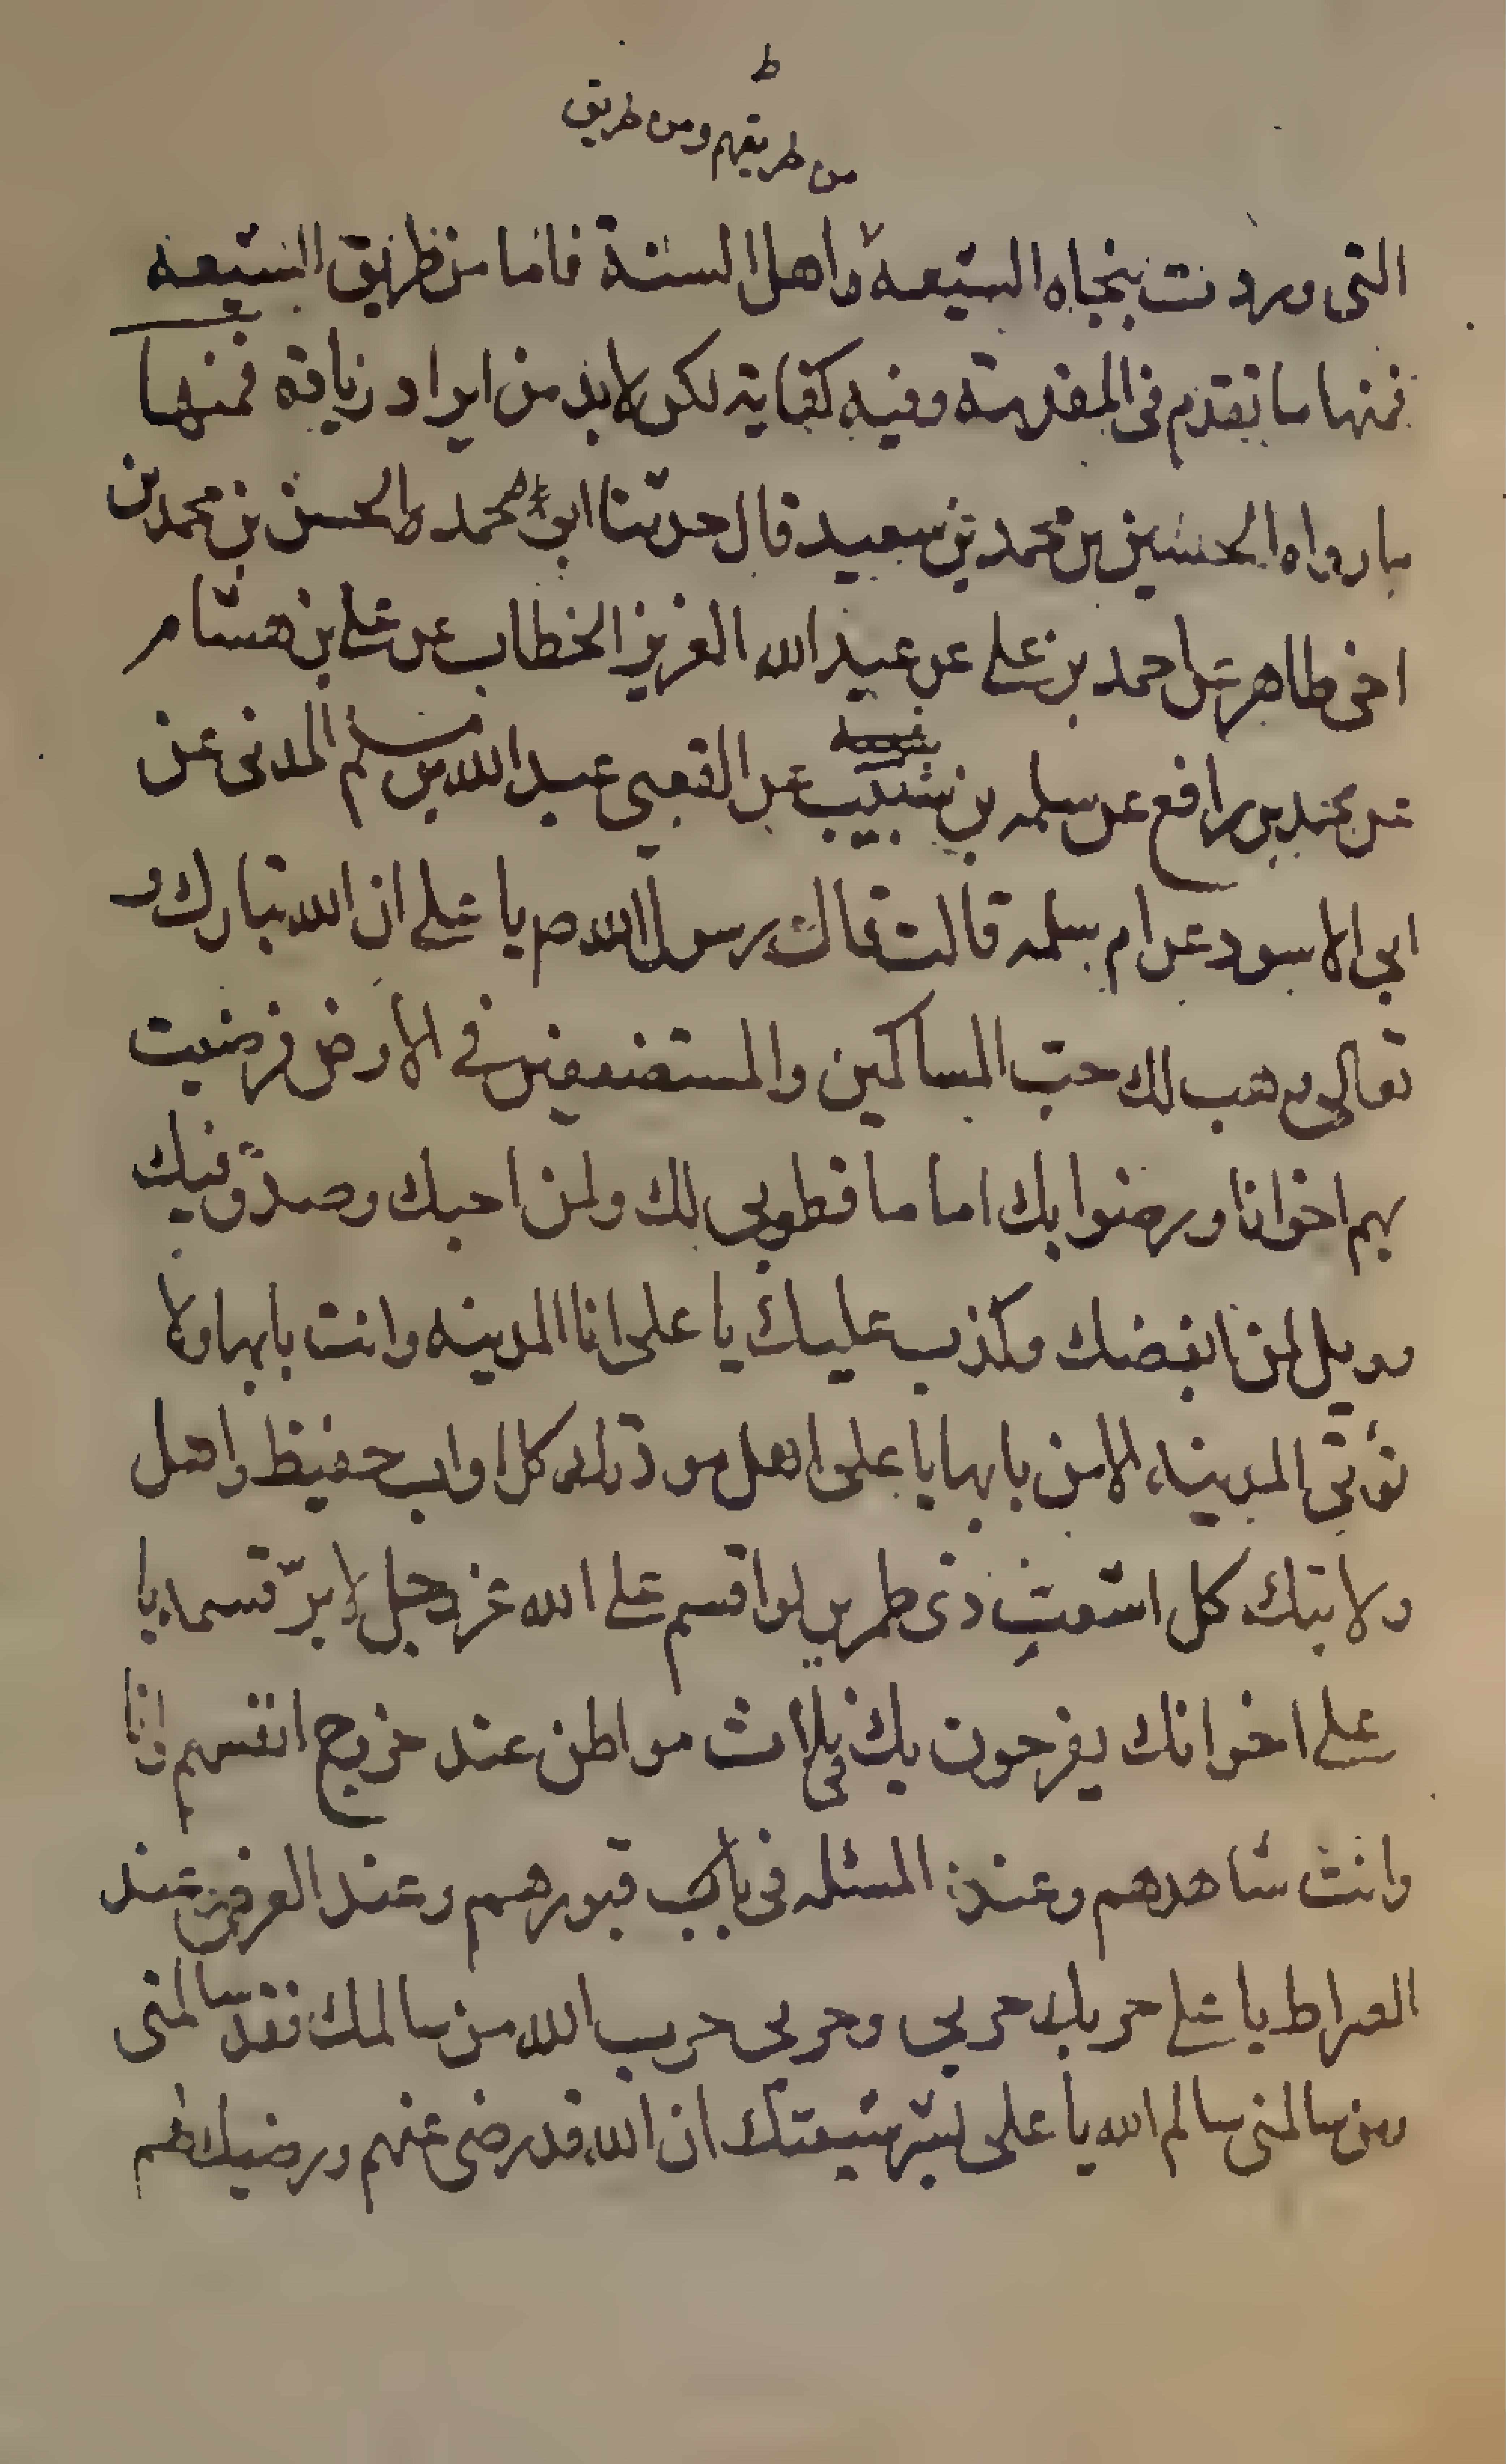 ط
من طريقهم ومن طريق
التى وردت بنجاه الشيعه واهل السنة فاما من طريق الشيعه
فمنها ما تقدم فى المقدمة وفيه كفاية لكن لا بد من ايراد زيادة فمنها
ما رواه الحسين بن محمد بن سعيد قال حدثنا ابى محمد الحسن بن محمد بن
اخى طاهر عن احمد بن على عن عبد الله العزيز الخطاب عن على بن هشام
عن محمد بن رافع عن سلمه بن شبيب عن القعبى عبد الله بن مسلم المدنى عن
ابى الاسود عن ام سلمه قالت قال رسول الله ص يا على ان الله تبارك و
تعالى وهب لك حبّ المساكين والمستضعفين فى الارض فرضيت
بهم اخوانا ورضوا بك اماما فطوبى لك ولمن احبك وصدّق فيك
وويل لمن ابغضك وكذب عليك يا على انا المدينه وانت بابها ولا
تؤتى المدينه الا من بابها يا على اهل مودتك كل اواب حفيظ واهل
ولايتك كل اشعث ذى طمرين لو اقسم على الله عز وجل لابرّ قسمه يا
على اخوانك يفرحون بك فى ثلاث مواطن عند خروج انفسهم وانا
وانت شاهدهم وعند المسئله فى باب قبورهم وعند العرض وعند
الصراط يا على حربك حربى وحربى حرب الله من سالمك فقد سالمنى
ومن سالمنى سالم الله يا على بشر شيعتك ان الله قد رضى عنهم ورضيك لهم